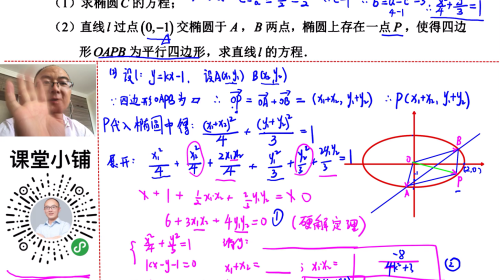 (1) 求椭圆 C 的方程;
(2) 直线 l 过点 (0,-1) 交椭圆于 A, B 两点, 椭圆上存在一点 P, 使得四边
形 OAPB 为平行四边形, 求直线 l 的方程.
设l: y=kx-1, 设A(x₁,y₁) B(x₂,y₂)
∵四边形OAPB为▱ ∴ OP=OA+OB=(x₁+x₂, y₁+y₂) ∴P(x₁+x₂, y₁+y₂)
P代入椭圆中得: (x₁+x₂)²/4 + (y₁+y₂)²/3 =1
展开: x₁²/4 + x₂²/4 + 2x₁x₂/4 + y₁²/3 + y₂²/3 + 2y₁y₂/3 =1
6+3x₁x₂+4y₁y₂=0 ① (硬解定理)
x²/4+y²/3=1
kx-y-1=0
x₁+x₂= ; x₁x₂= -8/4k²+3 ②
课堂小铺
O
A
B
P
(2,0)